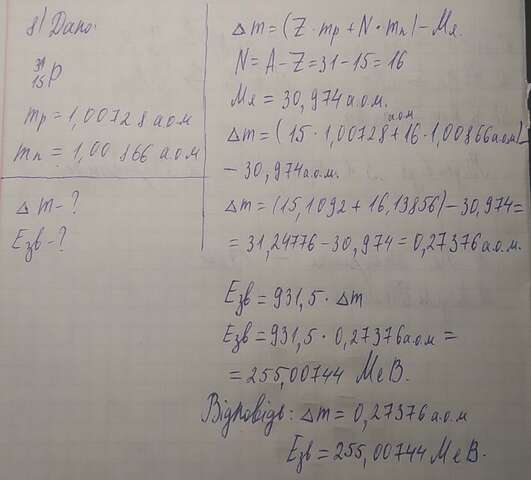 8) Дано:
³¹₁₅P
mp = 1,00728 а.о.м
mn = 1,00866 а.о.м
Δm - ?
Eзв - ?
Δm = (Z · mp + N · mn) - Mя.
N = A - Z = 31 - 15 = 16
Mя = 30,974 а.о.м.
Δm = (15 · 1,00728 а.о.м + 16 · 1,00866 а.о.м) -
- 30,974 а.о.м.
Δm = (15,1092 + 16,13856) - 30,974 =
= 31,24776 - 30,974 = 0,27376 а.о.м.
Eзв = 931,5 · Δm
Eзв = 931,5 · 0,27376 а.о.м =
= 255,00744 МеВ.
Відповідь: Δm = 0,27376 а.о.м
Eзв = 255,00744 МеВ.